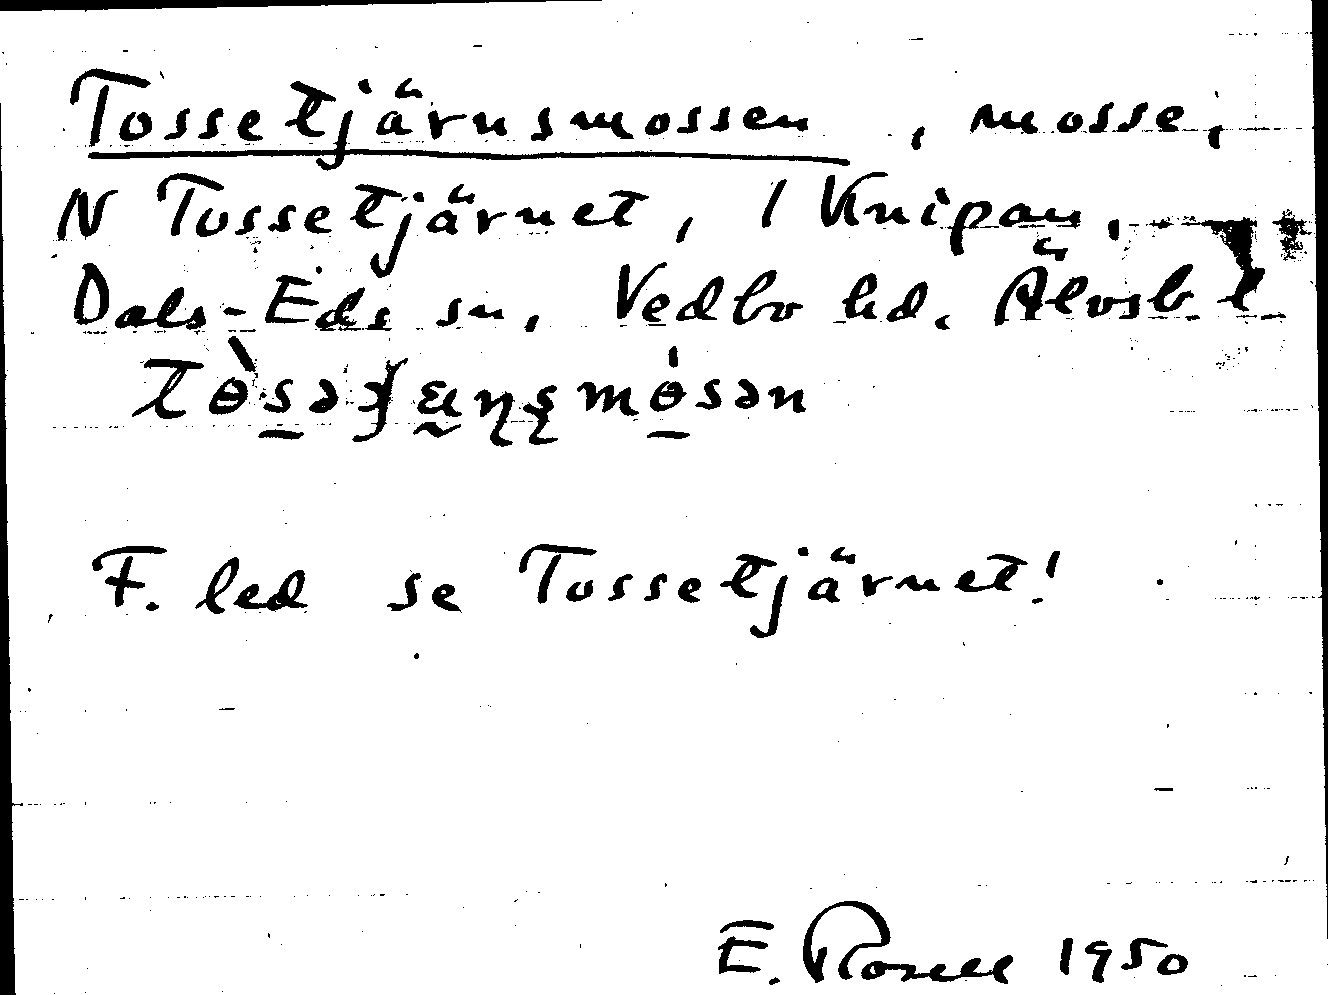 Tossetjärnsmossen, mosse,
N Tossetjärnet, 1 Knipan,
Dals-Eds sn, Vedbo hd. Älvsb. l
F. led se Tossetjärnet!
E. Rosell 1950